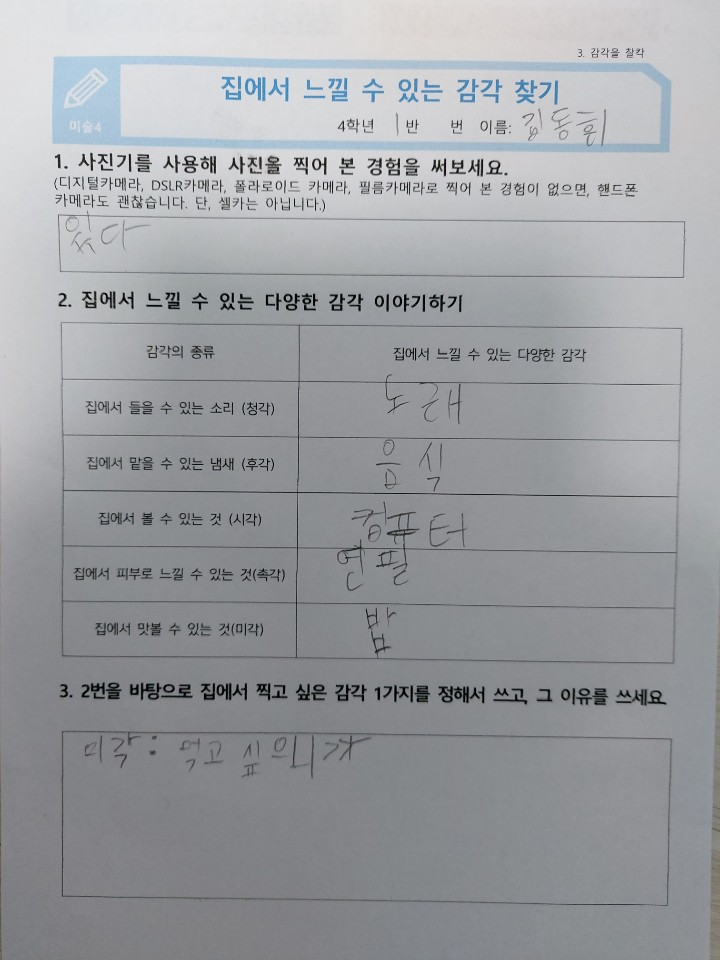 3. 감각을 찰칵
집에서 느낄 수 있는 감각 찾기
미술4
4학년 1반 번 이름: 김동희
1. 사진기를 사용해 사진을 찍어 본 경험을 써보세요.
(디지털카메라, DSLR카메라, 폴라로이드 카메라, 필름카메라로 찍어 본 경험이 없으면, 핸드폰
카메라도 괜찮습니다. 단, 셀카는 아닙니다.)
있다
2. 집에서 느낄 수 있는 다양한 감각 이야기하기
감각의 종류 집에서 느낄 수 있는 다양한 감각
집에서 들을 수 있는 소리 (청각) 노래
집에서 맡을 수 있는 냄새 (후각) 음식
집에서 볼 수 있는 것 (시각) 컴퓨터
집에서 피부로 느낄 수 있는 것(촉각) 연필
집에서 맛볼 수 있는 것(미각) 밥
3. 2번을 바탕으로 집에서 찍고 싶은 감각 1가지를 정해서 쓰고, 그 이유를 쓰세요.
미각: 먹고 싶으니가